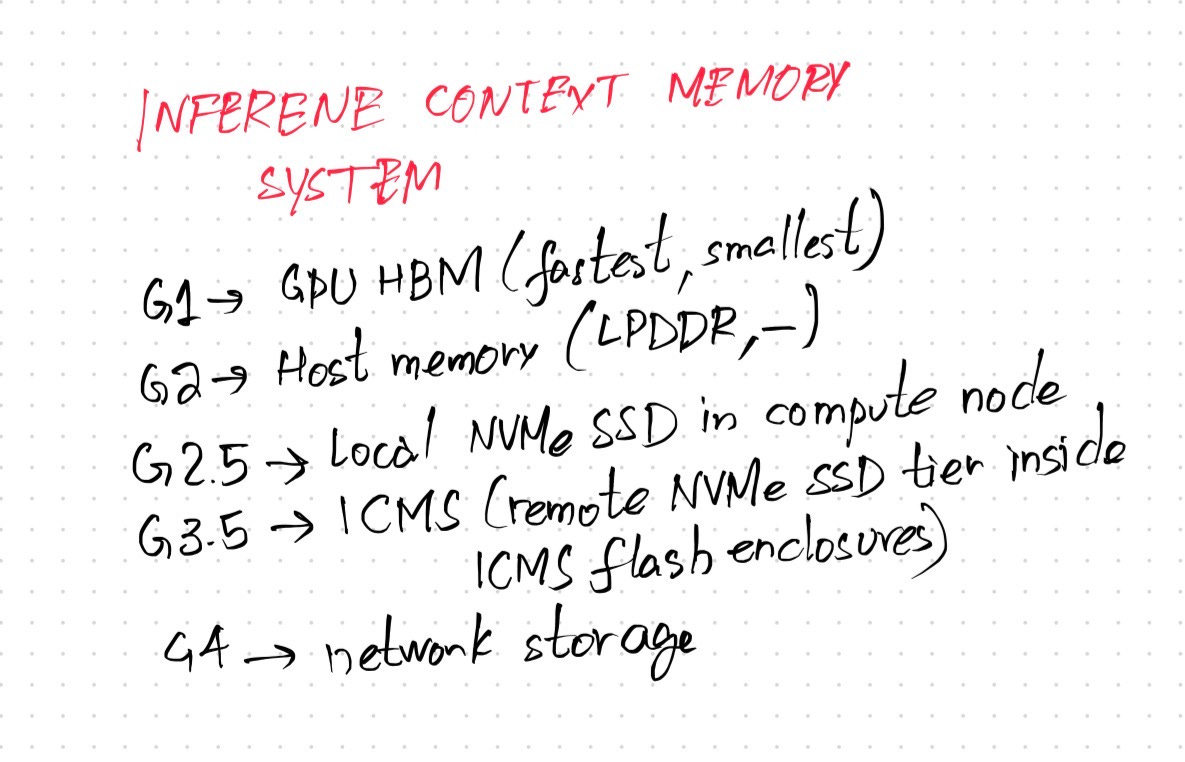 INFERENE CONTEXT MEMORY
SYSTEM
G1→ GPU HBM (fastest, smallest)
G2→ Host memory (LPDDR,-)
G2.5→ Local NVMe SSD in compute node
G3.5→ ICMS (remote NVMe SSD tier inside
ICMS flash enclosures)
G4→ network storage